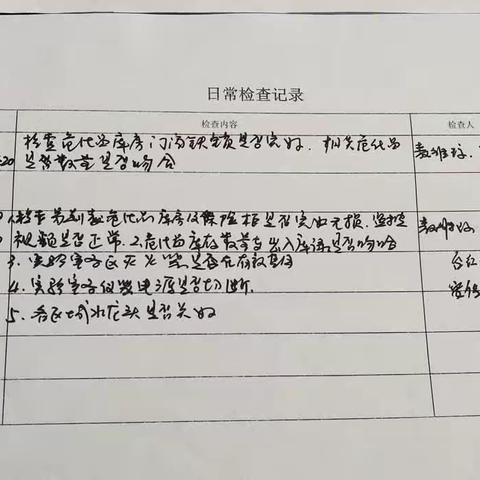 日常检查记录
检查内容 检查人
检查危化品库房门窗锁是否完好、相关危化品
20 是否数量是否吻合
1.检查易制毒危化品库房及保险柜是否完好无损、监控
视频是否正常.2.危化品库存数量与出入库详是否吻合
3.实验室各区灭火器是否在有效期
4.实验室各仪器电源是否切断.
5.各区域水龙头是否关好